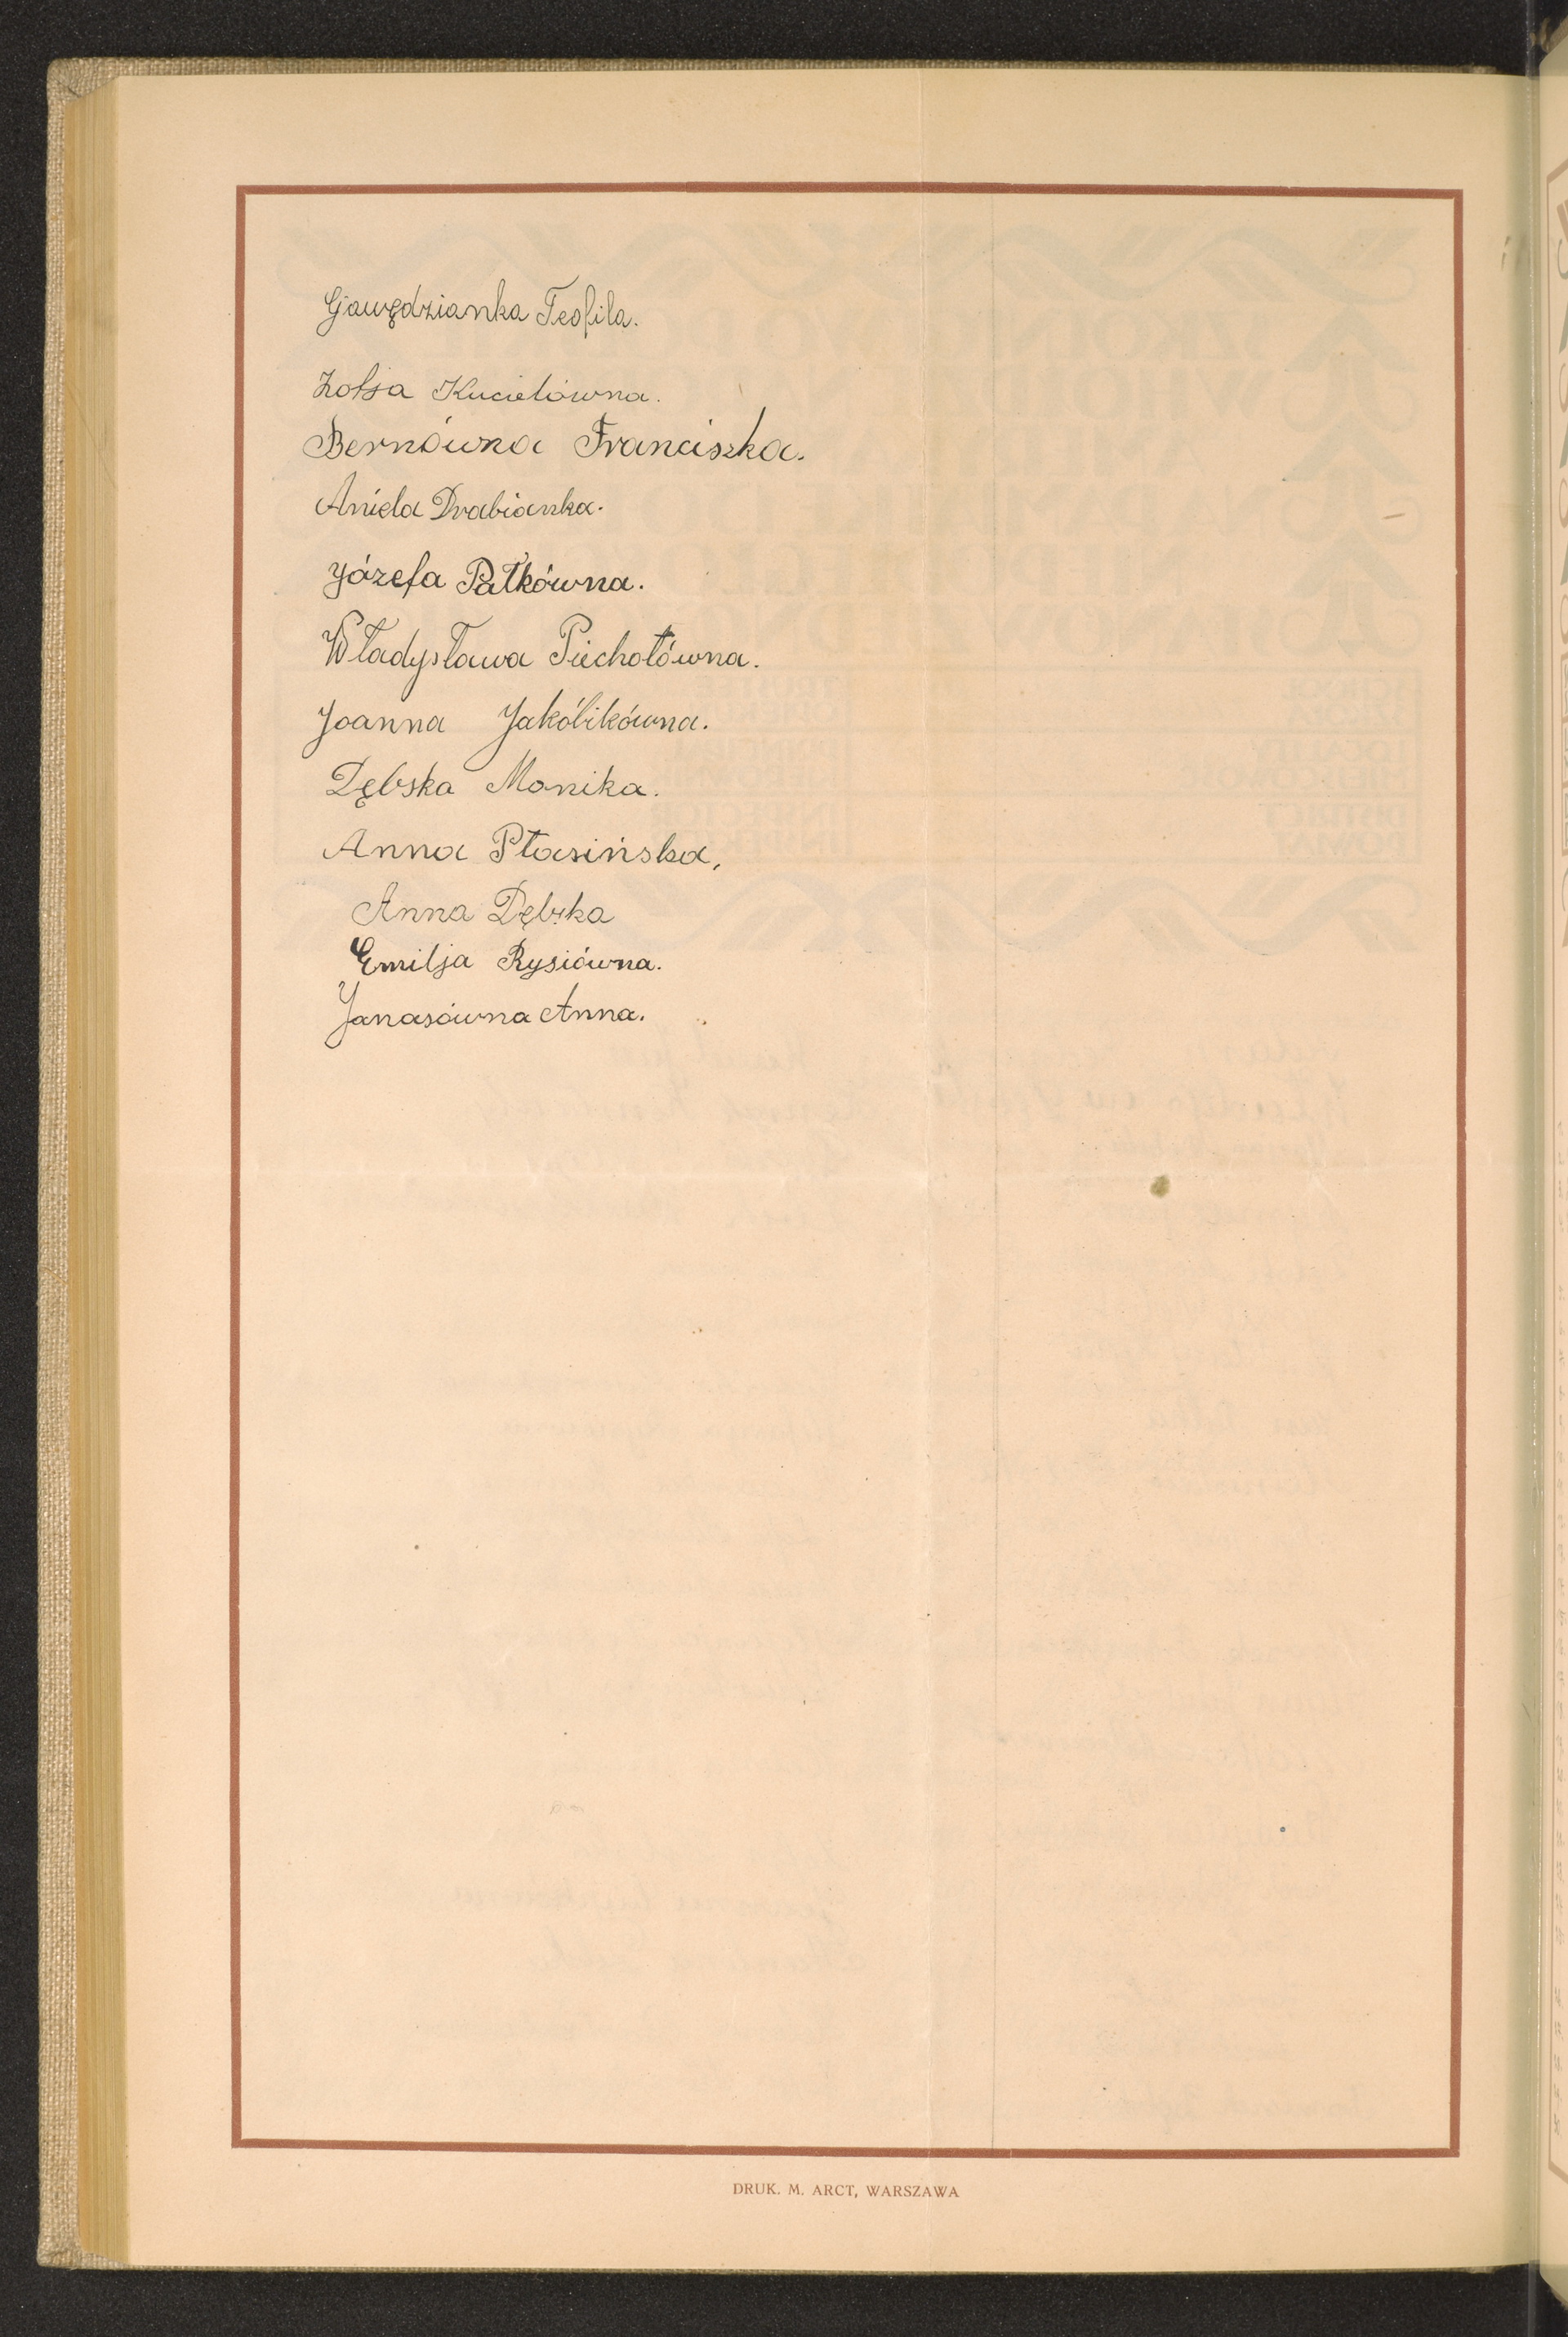 Gawędzianka Teofila.
Zofja Kucielówna.
Bernówna Franciszka.
Aniela Drabianka.
Józefa Pałkówna.
Władysława Piechotówna.
Joanna Jakóbikówna.
Dębska Monika.
Anna Ptasińska,
Anna Dębska
Emilja Rysiówna.
Janasówna Anna.
DRUK. M. ARCT, WARSZAWA